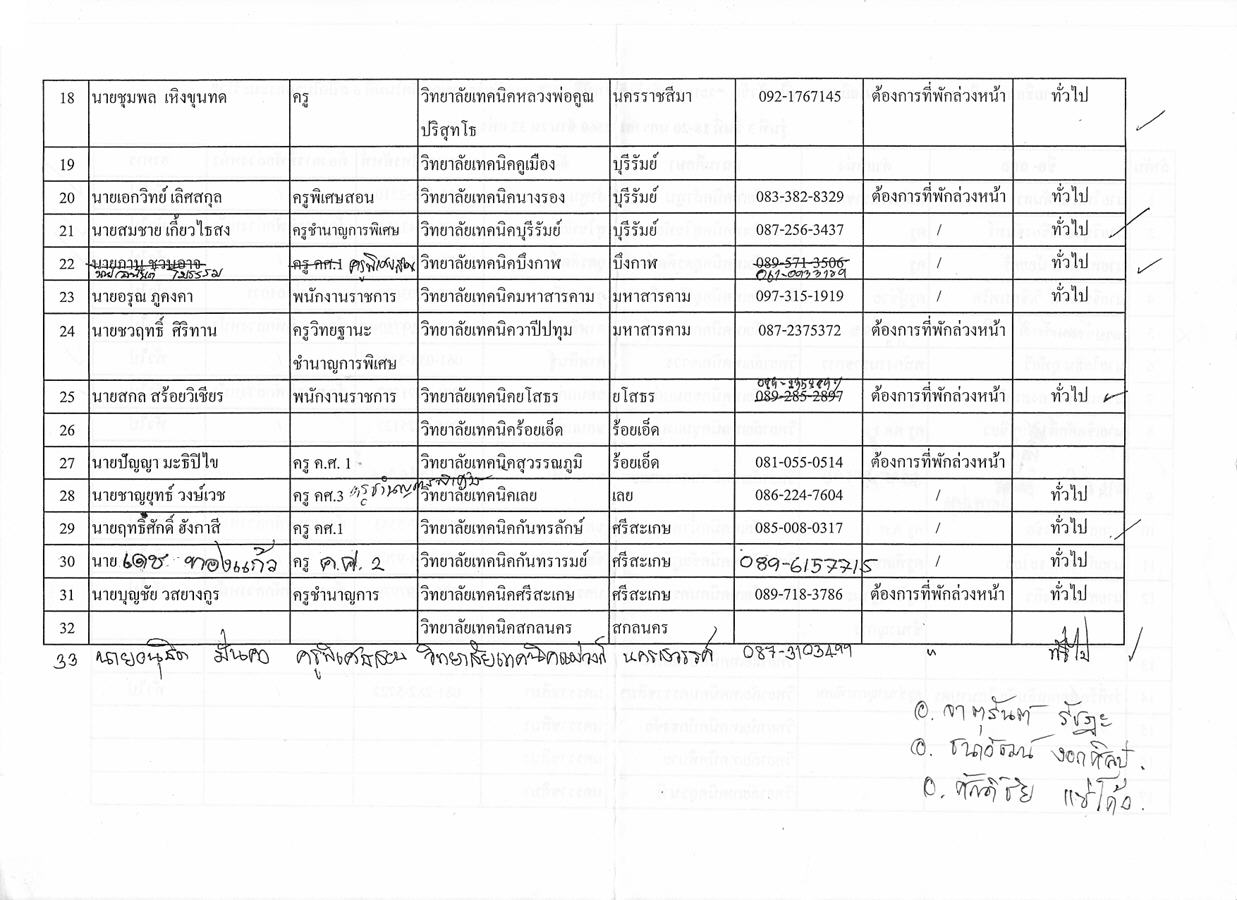 18 นายชุมพล เหิงขุนทด ครู วิทยาลัยเทคนิคหลวงพ่อคูณ นครราชสีมา 092-1767145 ต้องการที่พักล่วงหน้า ทั่วไป
ปริสุทโธ
19 วิทยาลัยเทคนิคคูเมือง บุรีรัมย์
20 นายเอกวิทย์ เลิศสกุล ครูพิเศษสอน วิทยาลัยเทคนิคนางรอง บุรีรัมย์ 083-382-8329 ต้องการที่พักล่วงหน้า ทั่วไป
21 นายสมชาย เกี้ยวไธสง ครูชำนาญการพิเศษ วิทยาลัยเทคนิคบุรีรัมย์ บุรีรัมย์ 087-256-3437 / ทั่วไป
22 นายภานุ ชวนอาจ ครู คศ.1 ครูพิเศษสอน วิทยาลัยเทคนิคบึงกาฬ บึงกาฬ 089-571-3506 / ทั่วไป
23 นายอรุณ ภูคงคา พนักงานราชการ วิทยาลัยเทคนิคมหาสารคาม มหาสารคาม 097-315-1919 / ทั่วไป
24 นายชวฤทธิ์ ศิริทาน ครูวิทยฐานะ วิทยาลัยเทคนิควาปีปทุม มหาสารคาม 087-2375372 ต้องการที่พักล่วงหน้า ทั่วไป
ชำนาญการพิเศษ
25 นายสกล สร้อยวิเชียร พนักงานราชการ วิทยาลัยเทคนิคยโสธร ยโสธร 089-285-2897 ต้องการที่พักล่วงหน้า ทั่วไป
26 วิทยาลัยเทคนิคร้อยเอ็ด ร้อยเอ็ด
27 นายปัญญา มะธิปิไข ครู ค.ศ. 1 วิทยาลัยเทคนิคสุวรรณภูมิ ร้อยเอ็ด 081-055-0514 ต้องการที่พักล่วงหน้า
28 นายชาญยุทธ์ วงษ์เวช ครู คศ.3 ครูชำนาญการพิเศษ วิทยาลัยเทคนิคเลย เลย 086-224-7604 / ทั่วไป
29 นายฤทธิ์ศักดิ์ อังกาสี ครู คศ.1 วิทยาลัยเทคนิคกันทรลักษ์ ศรีสะเกษ 085-008-0317 / ทั่วไป
30 นาย เดช ทองแก้ว ครู ค.ศ. 2 วิทยาลัยเทคนิคกันทรารมย์ ศรีสะเกษ 089-6157715 / ทั่วไป
31 นายบุญชัย วสยางกูร ครูชำนาญการ วิทยาลัยเทคนิคศรีสะเกษ ศรีสะเกษ 089-718-3786 ต้องการที่พักล่วงหน้า ทั่วไป
32 วิทยาลัยเทคนิคสกลนคร สกลนคร
33 ครูพิเศษสอน นครสวรรค์ 087-3103499 " ทั่วไป
อ. จาตุรันต์
อ.
อ. ศักดิ์ชัย แซ่โค้ว